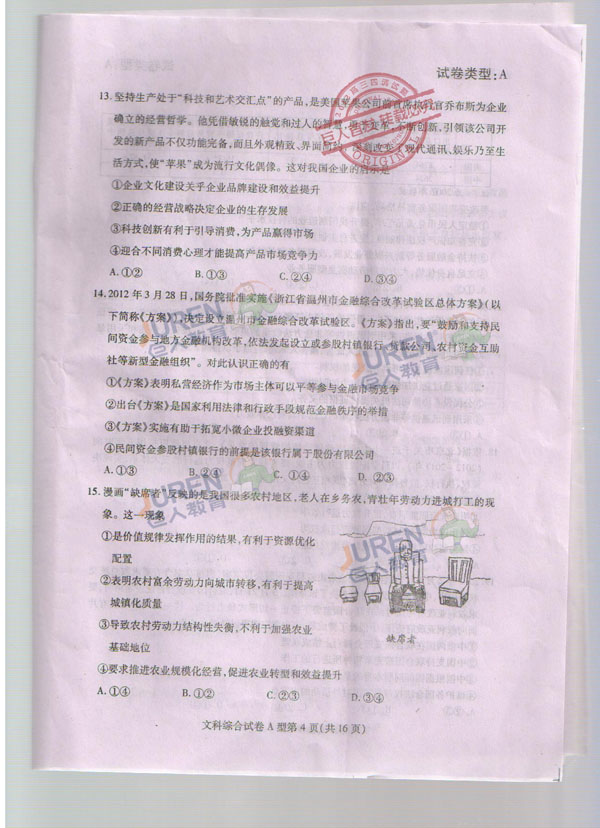 试卷类型:A
13.坚持生产处于“科技和艺术交汇点”的产品,是美国苹果公司前首席执行官乔布斯为企业
确立的经营哲学。他凭借敏锐的触觉和过人的智慧,勇于变革,不断创新,引领该公司开
发的新产品不仅功能完备,而且外观精致、界面,深刻改变了现代通讯、娱乐乃至生
活方式,使“苹果”成为流行文化偶像。这对我国企业的启示是
①企业文化建设关乎企业品牌建设和效益提升
②正确的经营战略决定企业的生存发展
③科技创新有利于引导消费,为产品赢得市场
④迎合不同消费心理才能提高产品市场竞争力
A.①② B.①③ C.②④ D.③④
14.2012年3月28日,国务院批准实施《浙江省温州市金融综合改革试验区总体方案》(以
下简称《方案》),决定设立温州市金融综合改革试验区。《方案》指出,要“鼓励和支持民
间资金参与地方金融机构改革,依法发起设立或参股村镇银行、贷款公司、农村资金互助
社等新型金融组织”。对此认识正确的有
①《方案》表明私营经济作为市场主体可以平等参与金融市场竞争
②出台《方案》是国家利用法律和行政手段规范金融秩序的举措
③《方案》实施有助于拓宽小微企业投融资渠道
④民间资金参股村镇银行的前提是该银行属于股份有限公司
A.①③ B.②④ C.①④ D.②③
15.漫画“缺席者”反映的是我国很多农村地区,老人在乡务农,青壮年劳动力进城打工的现
象。这一现象
①是价值规律发挥作用的结果,有利于资源优化
配置
②表明农村富余劳动力向城市转移,有利于提高
城镇化质量
③导致农村劳动力结构性失衡,不利于加强农业
基础地位
④要求推进农业规模化经营,促进农业转型和效益提升
缺席者
A.①④ B.①② C.②③ D.③④
文科综合试卷A型第4页(共16页)
JUREN
巨人教育
JUREN
巨人教育
JUREN
巨人教育
ORIGINAL